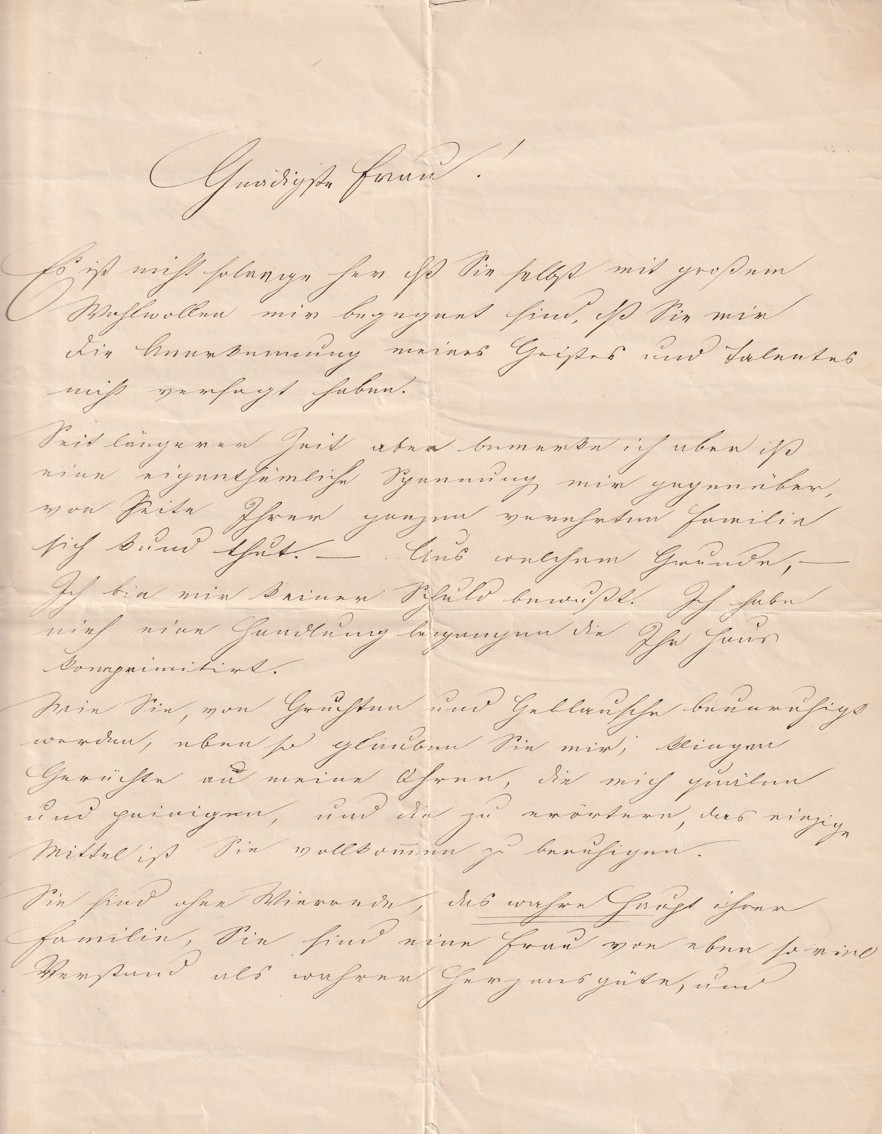 Gnädigste Frau!
Es ist nicht solange her dß Sie selbst mit großem
Wohlwollen mir begegnet sind, dß Sie mir
die Anerkennung meines Geistes und Talentes
nicht versagt haben.
Seit längerer Zeit aber bemerke ich aber dß
eine eigenthümliche Spannung mir gegenüber,
von Seite Ihrer ganzen verehrten Familie
sich kund thut. — Aus welchem Grunde, —
Ich bin mir keiner Schuld bewußt. Ich habe
nie eine Handlung begangen die Ihr Haus
kompromitirt.
Wie Sie, von Gruchten und Geklausche beunruhigt
werden, eben so glauben Sie mir, klingen
Gerüchte an meine Ohren, die mich quälen
und peinigen, und die zu erörtern, das einzige
Mittel ist Sie vollkommen zu beruhigen.
Sie sind ohne Wierrede, das wahre Haupt ihrer
Familie, Sie sind eine Frau von eben so viel
Verstand als wahrer Herzensgüte, und